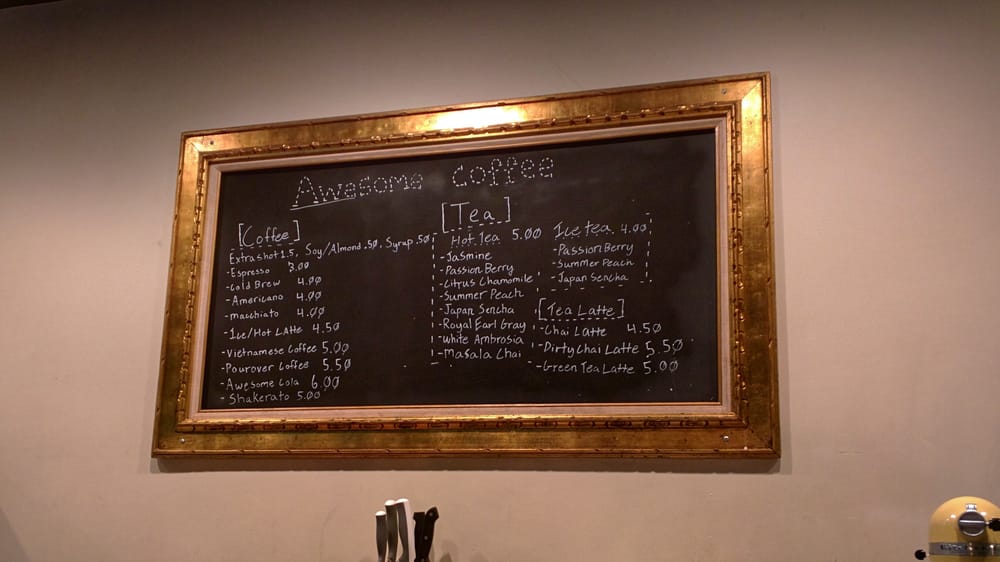 Awesome Coffee
[Coffee]
Extra shot 1.5, Soy/Almond .50, Syrup .50
-Espresso 3.00
-Cold Brew 4.00
-Americano 4.00
-macchiato 4.00
-Ice/Hot Latte 4.50
-Vietnamese Coffee 5.00
-Pourover Coffee 5.50
-Awesome Cola 6.00
-Shakerato 5.00
[Tea]
Hot Tea 5.00
-Jasmine
-Passion Berry
-Citrus Chamomile
-Summer Peach
-Japan Sencha
-Royal Earl Gray
-White Ambrosia
-Masala Chai
Ice tea 4.00
-Passion Berry
-Summer Peach
-Japan Sencha
[Tea Latte]
-Chai Latte 4.50
-Dirty Chai Latte 5.50
-Green Tea Latte 5.00